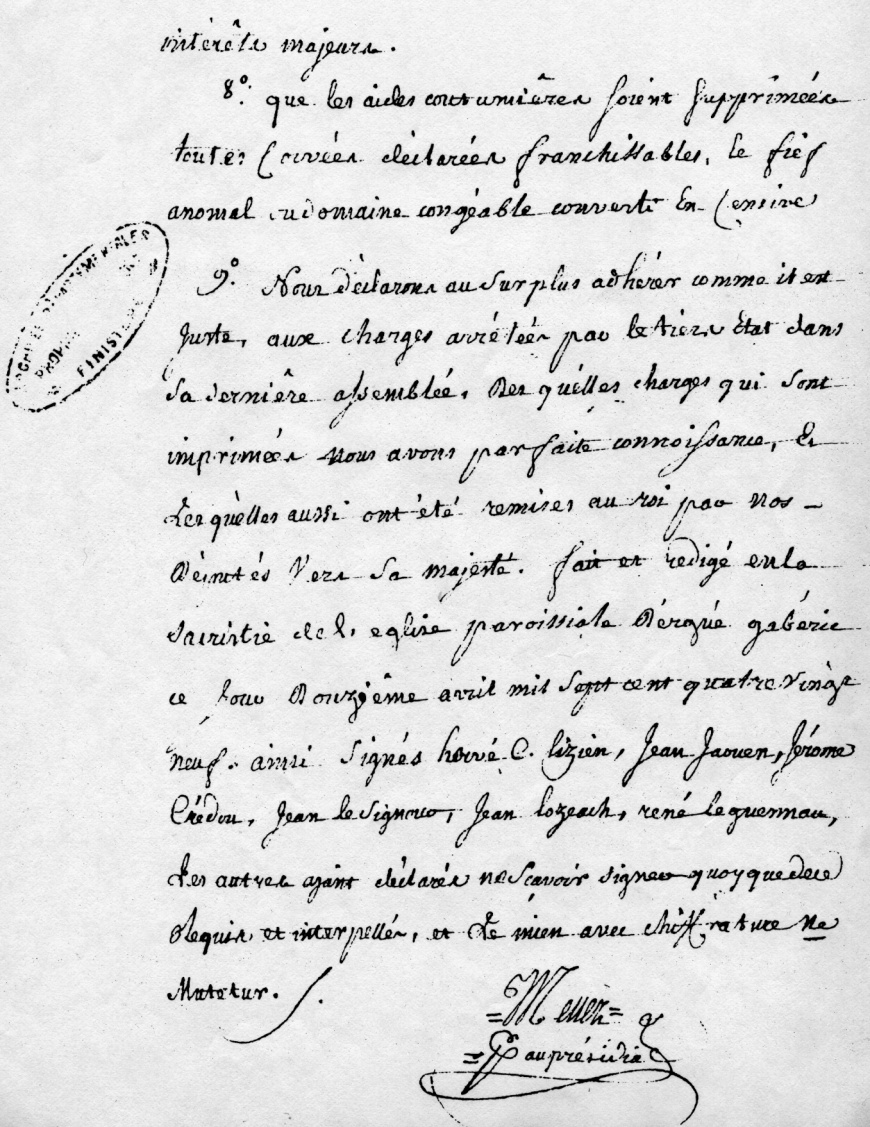 intérêts majeurs.
8°. que les aides coutumières soient supprimées
toutes Corvées déclarées franchissables, le fief
anomal ou domaine congéable converti En Censive
9°. Nous déclarons au surplus adhérer comme il est
juste, aux charges arrêtées par le tiers Etat dans
sa dernière assemblée, Des quelles charges qui sont
imprimées nous avons parfaite connoissance, Et
Les quelles aussi ont été remises au roi par nos
Députés Vers sa majesté. fait et redigé en la
sacristie de l'eglise paroissiale D'ergué gabéric
ce jour Douzième avril mil sept cent quatre vingt
neuf. ainsi signés hervé C. lizien, Jean Jaouen, Jérome
Crédou, Jean le Signour, Jean lozeach, rené le guennau,
Les autres ajant déclarés ne Scavoir signer quoy que de ce
Requis et interpellés, et Le mien avec chiff rature ne
Mutetur.
au présidial
ARCHIVES DÉPARTEMENTALES
FINISTÈRE